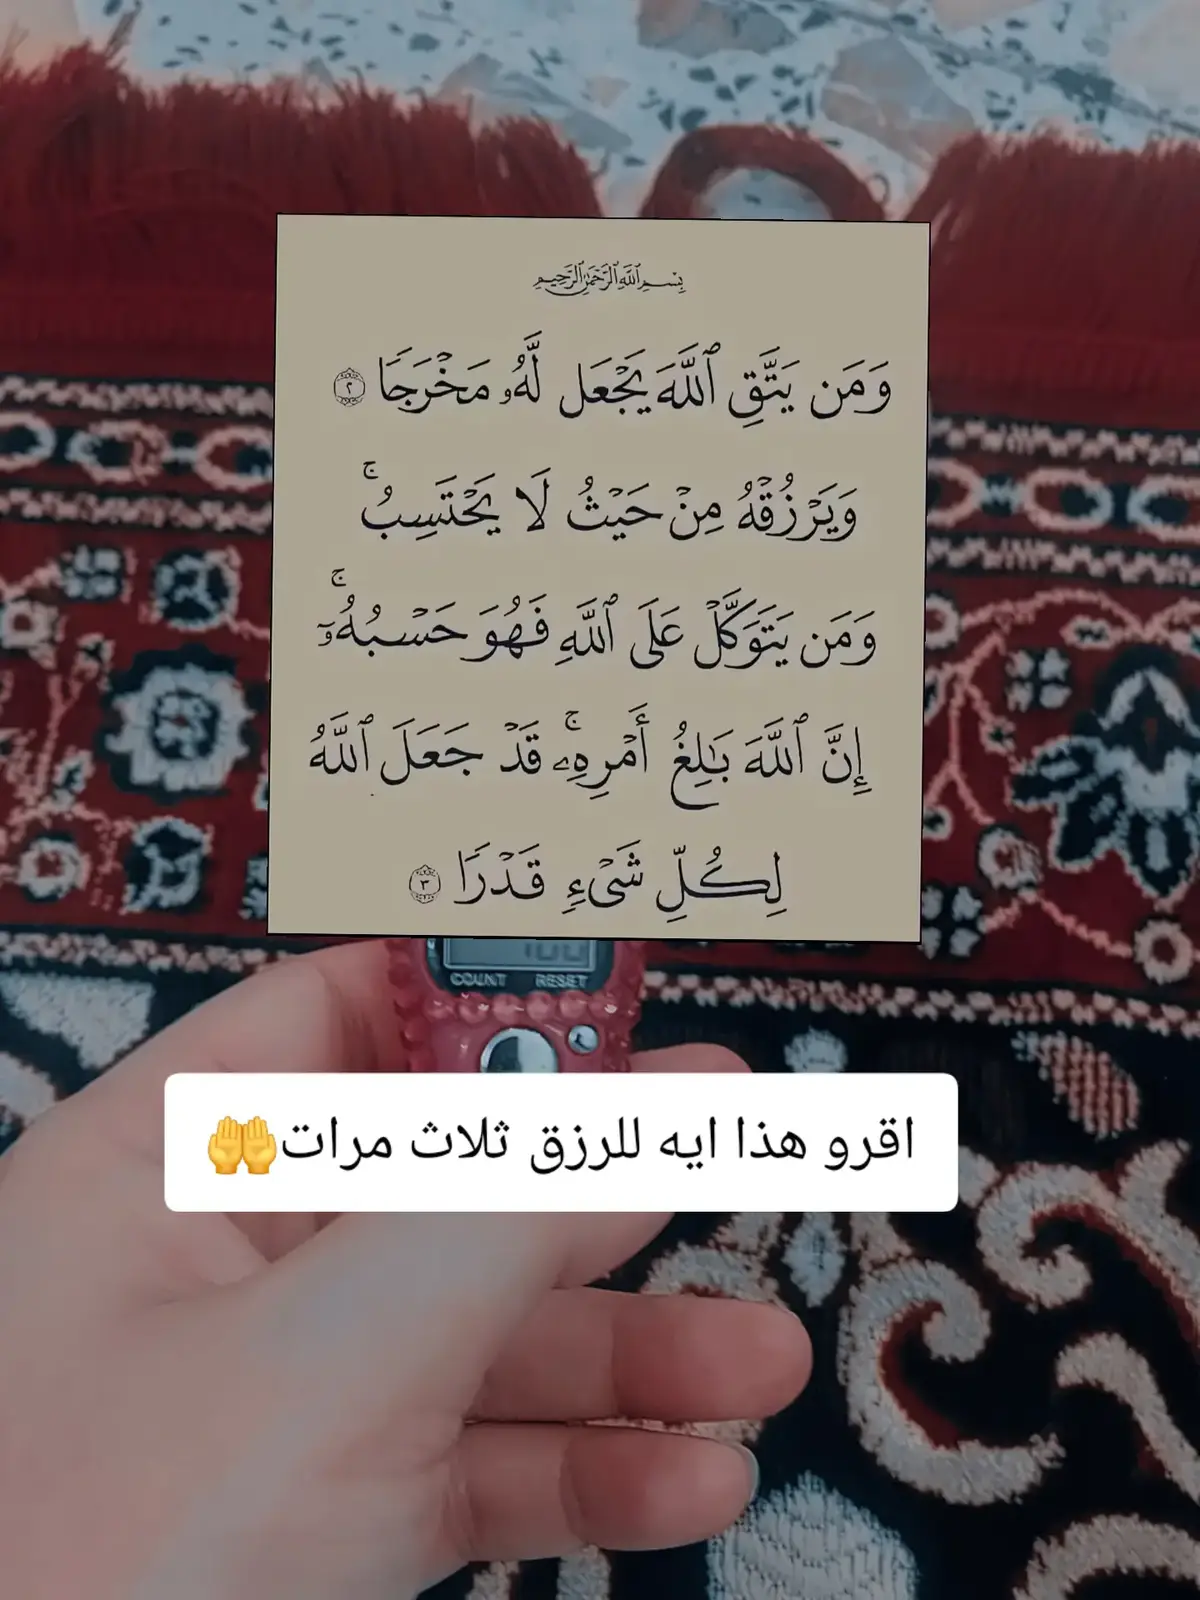 بِسْمِ ٱللَّهِ ٱلرَّحْمَٰنِ ٱلرَّحِيمِ
وَمَن يَتَّقِ ٱللَّهَ يَجْعَل لَّهُۥ مَخْرَجًا ٢
وَيَرْزُقْهُ مِنْ حَيْثُ لَا يَحْتَسِبُ ۚ
وَمَن يَتَوَكَّلْ عَلَى ٱللَّهِ فَهُوَ حَسْبُهُۥٓ ۚ
إِنَّ ٱللَّهَ بَٰلِغُ أَمْرِهِۦ ۚ قَدْ جَعَلَ ٱللَّهُ
لِكُلِّ شَىْءٍ قَدْرًا ٣
100
COUNT RESET
اقرو هذا ايه للرزق ثلاث مرات🤲